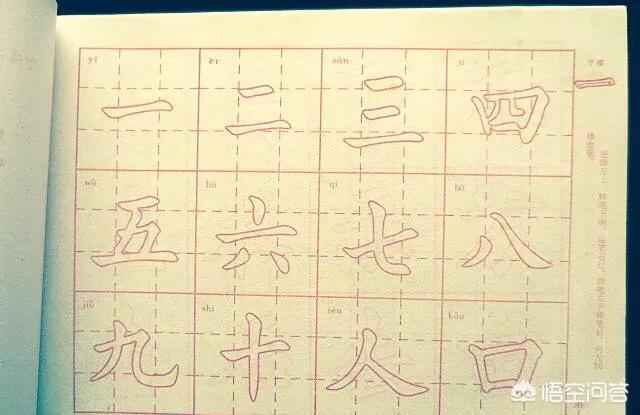 yī èr sān sì
一 二 三 四
wǔ liù qī bā
五 六 七 八
jiǔ shí rén kǒu
九 十 人 口
平横
一
悟空问答